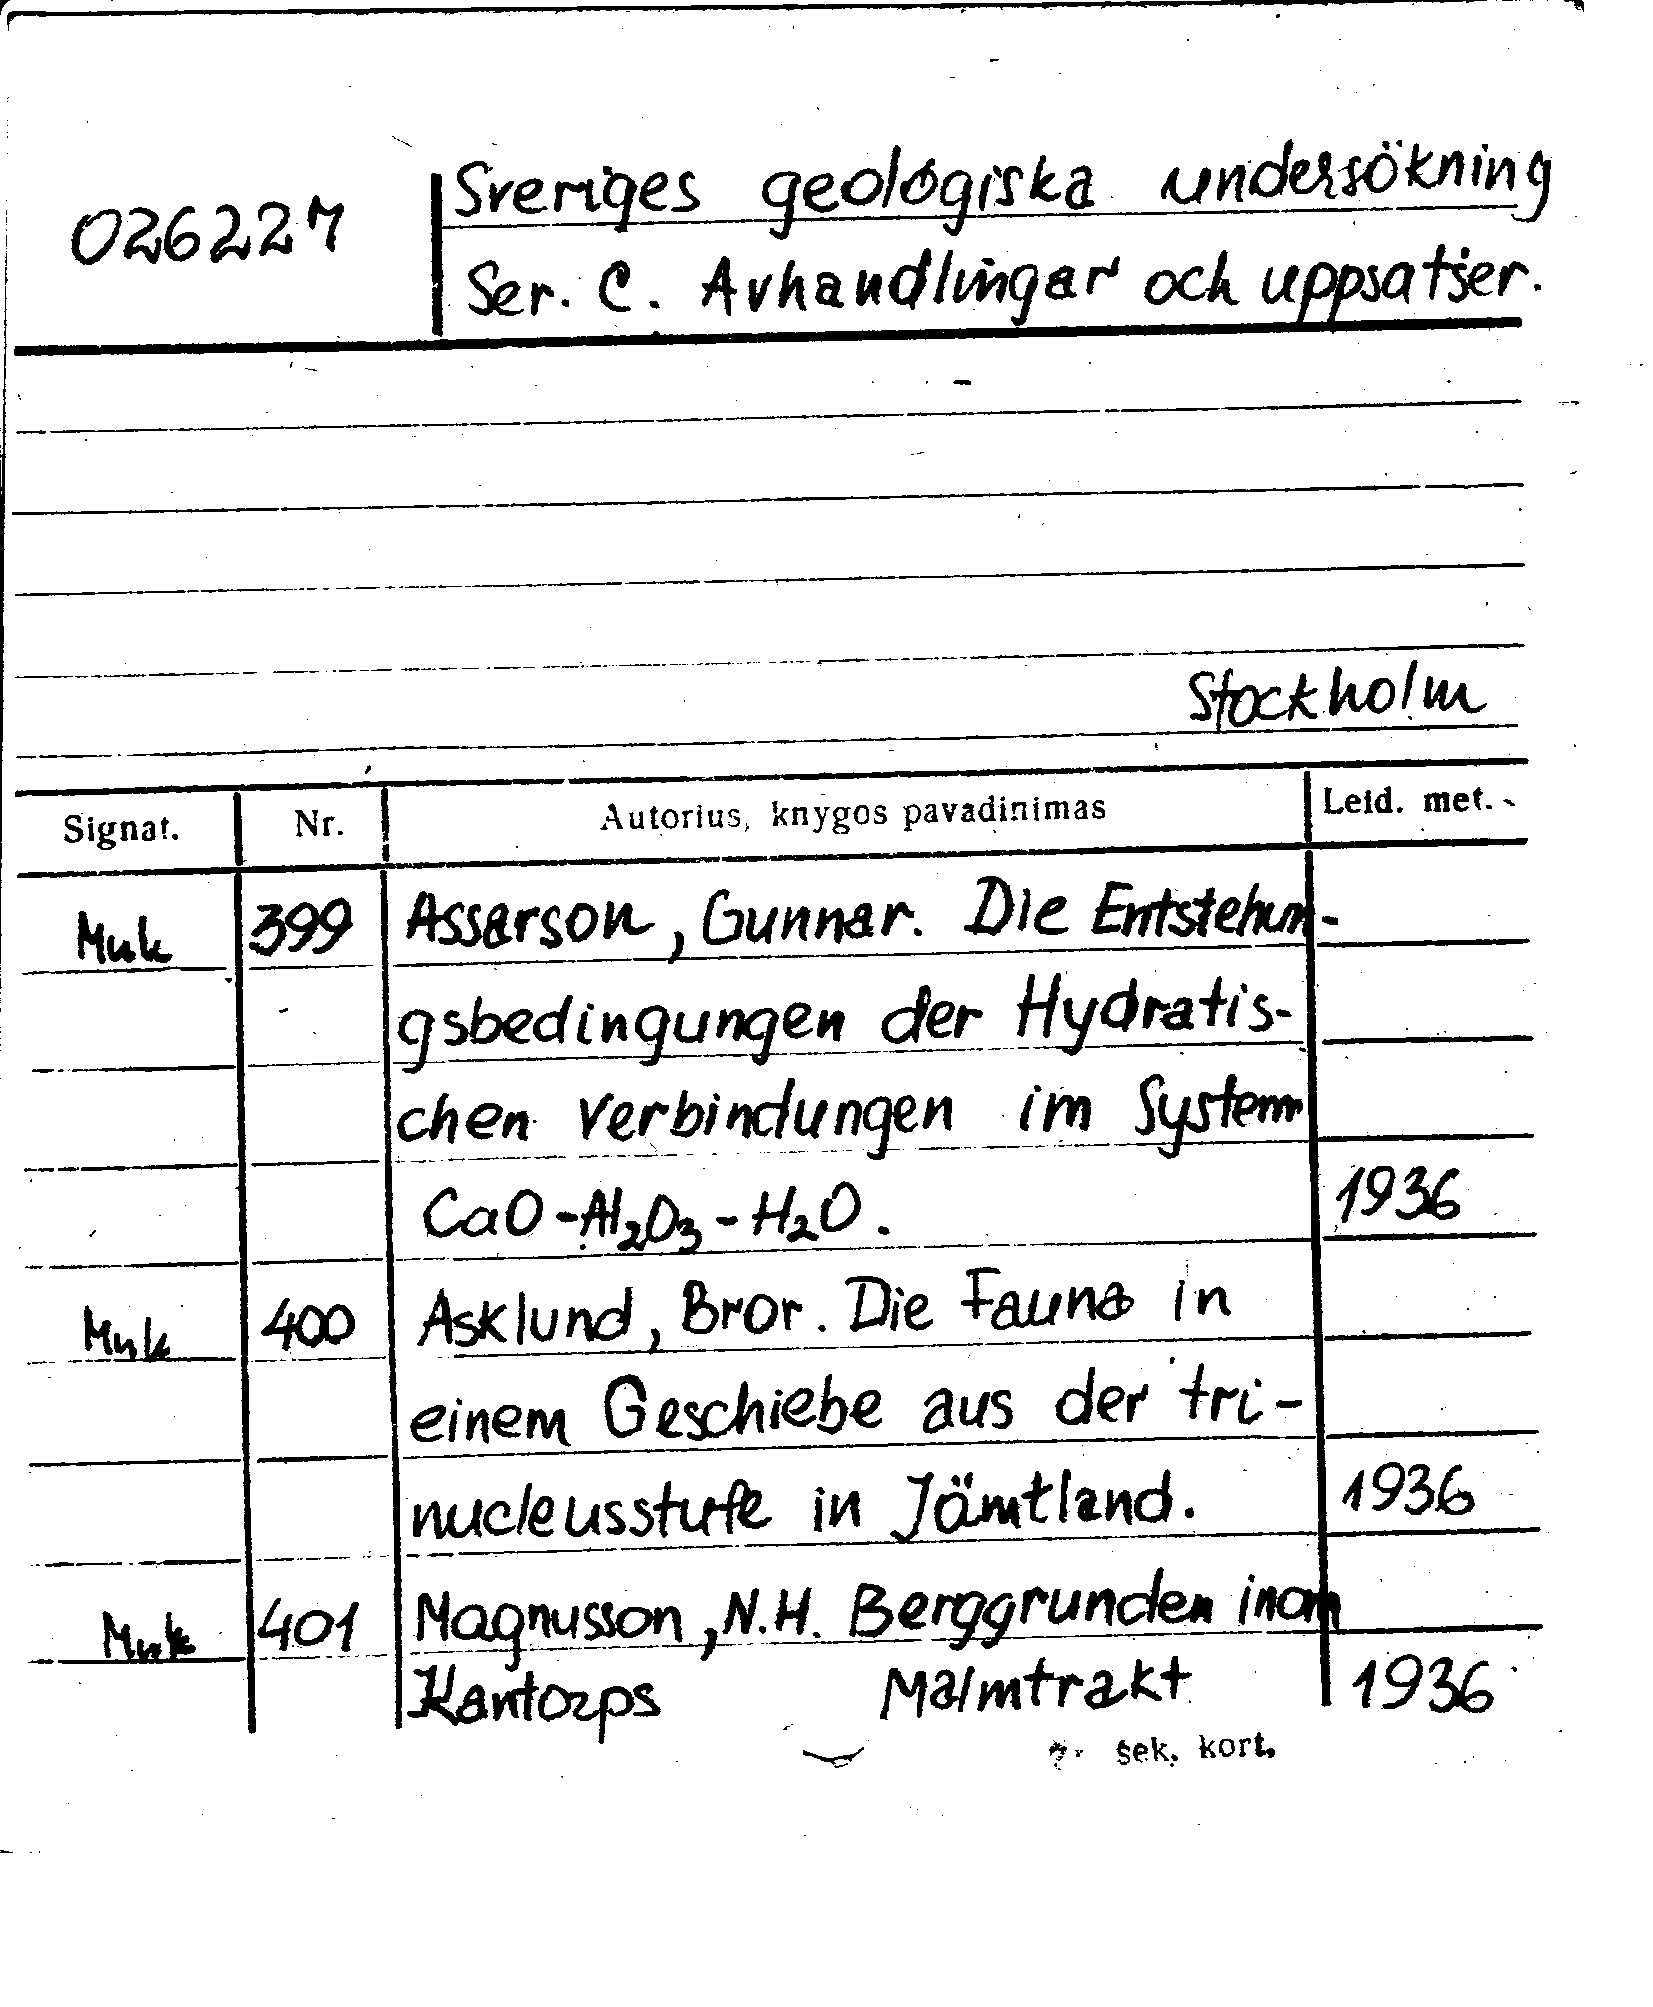 026227
Sveriges geológiska undersökning
Ser. C. Avhandlingar och uppsatser.
Stockholm
Signat. Nr. Autorius, knygos pavadinimas Leid. met.
Muk 399 Assarson, Gunnar. Die Entstehun-
gsbedingungen der Hydratis-
chen Verbindungen im System
CaO-Al₂O₃-H₂O. 1936
Muk 400 Asklund, Bror. Die Fauna in
einem Geschiebe aus der tri-
nucleusstufe in Jämtland. 1936
Muk 401 Magnusson, N.H. Berggrunden inom
Kantorps Malmtrakt 1936
sek. kort.